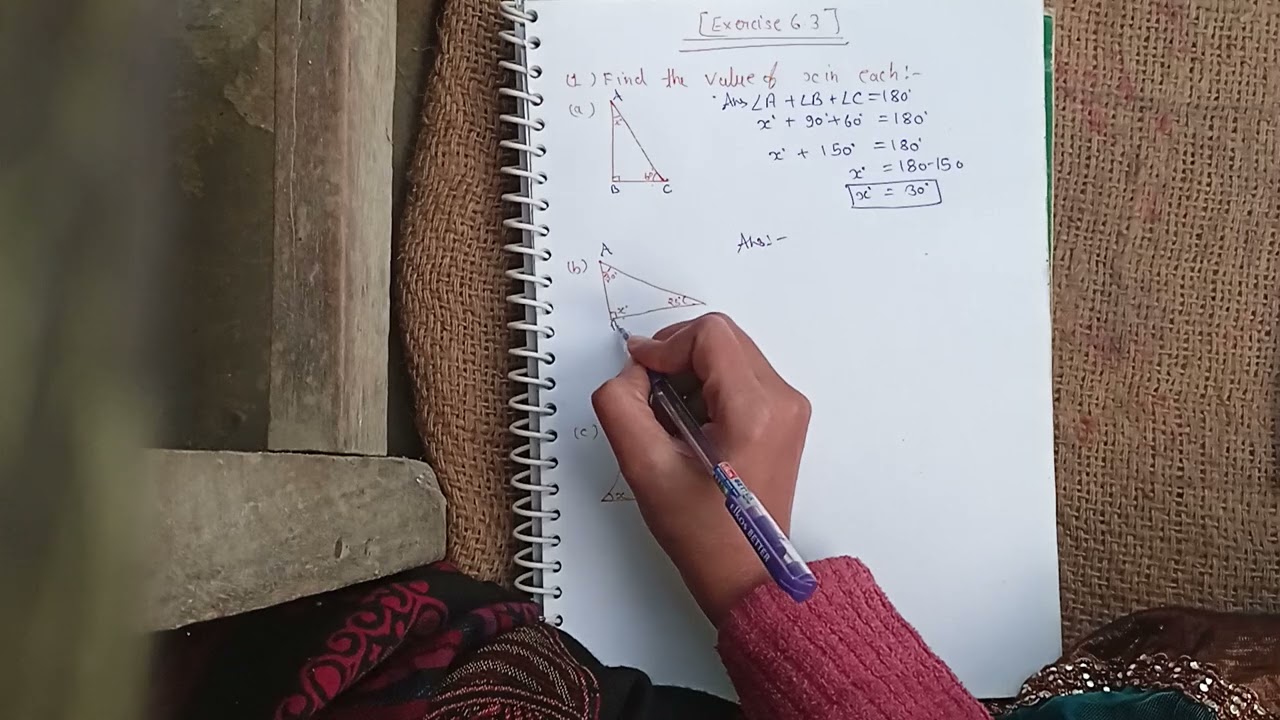 [Exercise 6.3]
(1) Find the value of x in each:-
(a)
A
x°
B
C
Ans ∠A + ∠B + ∠C = 180°
x° + 90° + 60° = 180°
x° + 150° = 180°
x° = 180-150
x° = 30°
(b)
A
30°
x°
Ans:-
(c)
x
elkos BETTER